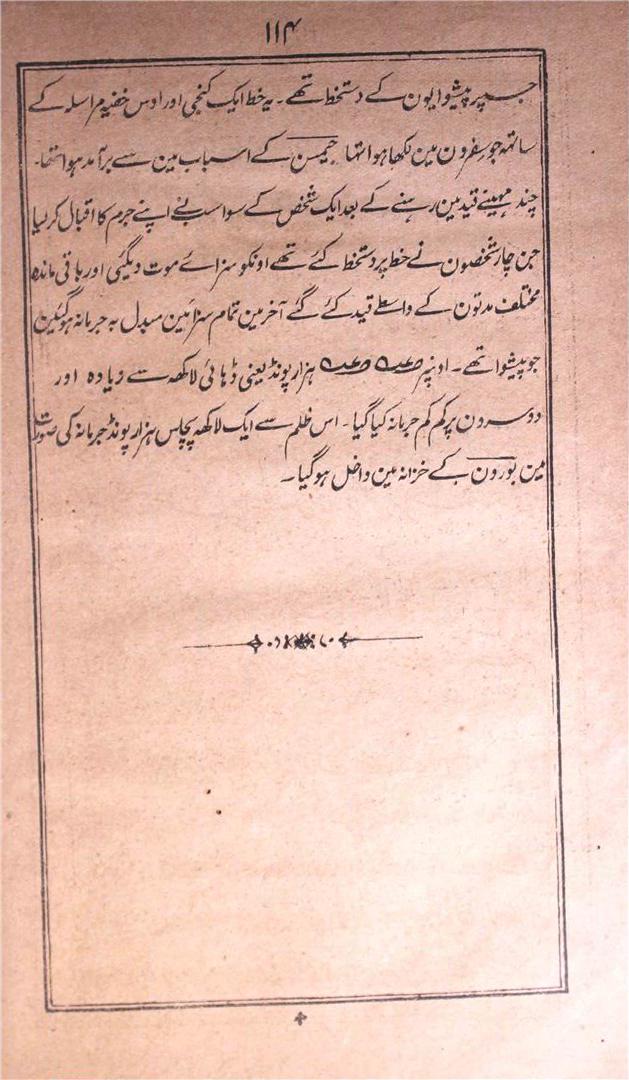 ۱۱۴
جسپر پیشوایون کے دستخط تھے ۔ یہ خط ایک کنجی اور اوس خفیہ مراسلہ کے
ساتھہ جو سِفرون مین لکھا ہوا تھا جیمسن کے اسباب مین سے برآمد ہوا تھا ۔
چند مہینے قید مین رہنے کے بعد ایک شخص کے سوا سب نے اپنے جرم کا اقبال کر لیا
جن چار شخصون نے خط پر دستخط کئے تھے اونکو سزائے موت دیگئی اور باقی ماندہ
مختلف مدتون کے واسطے قید کئے گئے آخر مین تمام سزائین مبدل بہ جرمانہ ہوگئین
جو پیشوا تھے ۔ اونپر ہزار پونڈ یعنی ڈہائی لاکھہ سے زیادہ اور
دوسرون پر کم کم جرمانہ کیا گیا ۔ اس ظلم سے ایک لاکھہ پچاس ہزار پونڈ جرمانہ کی صورت
مین بورون کے خزانہ مین داخل ہوگیا ۔